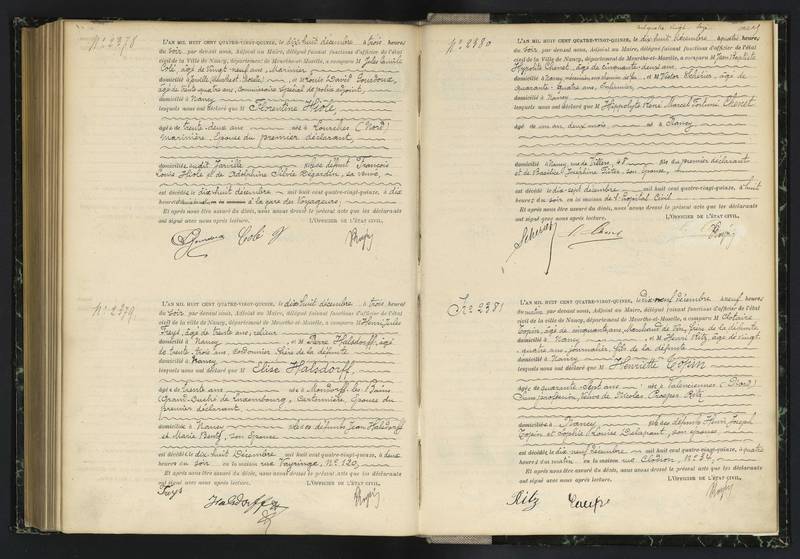 N° 2378
L'AN MIL HUIT CENT QUATRE-VINGT-QUINZE, le dix huit décembre à trois heures
du soir par devant nous, Adjoint au Maire, délégué faisant fonctions d'officier de l'état
civil de la Ville de Nancy, département de Meurthe-et-Moselle, a comparu M Jules Camille
Colé, âgé de vingt neuf ans, Marinier
domicilié à Jarville (Meurthe et Moselle), et M Louis David
âgé de trente quatre ans, Commissaire spécial de police adjoint,
domicilié à Nancy
lesquels nous ont déclaré que M Florentine Hiole,
âgée de trente-deux ans née à Lourches (Nord)
marinière, Épouse du premier déclarant,
domiciliée au dit Jarville fille de défunt François
Louis Hiole et de Adolphine Silvie Dégardin, sa veuve,
est décédée le dix huit décembre mil huit cent quatre-vingt-quinze, à dix
heures à la gare des Voyageurs;
Et après nous être assuré du décès, nous avons dressé le présent acte que les déclarants
ont signé avec nous après lecture. L'OFFICIER DE L'ÉTAT CIVIL,
Colé J
N° 2379
L'AN MIL HUIT CENT QUATRE-VINGT-QUINZE, le dix huit décembre à trois heures
du soir, par devant nous, Adjoint au Maire, délégué faisant fonctions d'officier de l'état
civil de la Ville de Nancy, département de Meurthe-et-Moselle, a comparu M Henri Jules
Freys, âgé de trente ans, relieur
domicilié à Nancy, et M Pierre Halsdorff, âgé
de trente trois ans, Cordonnier, frère de la défunte
domicilié à Nancy
lesquels nous ont déclaré que M Elise Halsdorff,
âgée de trente ans née à Mondorff les Bains
(Grand-Duché de Luxembourg), Cartonnière, Épouse du
premier déclarant
domiciliée à Nancy fille des défunts Jean Halsdorff
et Marie Bentz, son épouse
est décédée le dix huit Décembre mil huit cent quatre-vingt-quinze, à deux
heures du soir en la maison rue Vayringe, N° 120,
Et après nous être assuré du décès, nous avons dressé le présent acte que les déclarants
ont signé avec nous après lecture. L'OFFICIER DE L'ÉTAT CIVIL,
Freys
Halsdorff
N° 2380
L'AN MIL HUIT CENT QUATRE-VINGT-QUINZE, le dix huit Décembre à quatre heures
du soir, par devant nous, Adjoint au Maire, délégué faisant fonctions d'officier de l'état
civil de la Ville de Nancy, département de Meurthe-et-Moselle, a comparu M Jean Baptiste
Hippolyte Chenet, âgé de cinquante-deux ans
domicilié à Nancy, et M Victor Scherio, âgé de
quarante-quatre ans, Infirmier,
domicilié à Nancy
lesquels nous ont déclaré que M Hippolyte René Marcel Fortuné Chenet
âgé de un an, deux mois né à Nancy
domicilié à Nancy, rue de Villers, 48 fils du premier déclarant
et de Basilice Joséphine Pitès, son épouse,
est décédé le dix-sept décembre mil huit cent quatre-vingt-quinze, à huit
heures du soir en la maison de l'Hôpital Civil
Et après nous être assuré du décès, nous avons dressé le présent acte que les déclarants
ont signé avec nous après lecture. L'OFFICIER DE L'ÉTAT CIVIL,
N° 2381
L'AN MIL HUIT CENT QUATRE-VINGT-QUINZE, le Dix neuf Décembre à neuf heures
du matin par devant nous, Adjoint au Maire, délégué faisant fonctions d'officier de l'état
civil de la Ville de Nancy, département de Meurthe-et-Moselle, a comparu M Clotaire
Copin, âgé de cinquante ans, Marchand de Vin, frère de la défunte
domicilié à Nancy, et M Henri Ritz, âgé de vingt
quatre ans, journalier, fils de la défunte
domicilié à Nancy
lesquels nous ont déclaré que M Henriette Copin
âgée de quarante-sept ans née à Valenciennes (Nord)
Sans profession, Veuve de Nicolas Prosper Ritz
domiciliée à Nancy fille des défunts Henri Joseph
Copin et Sophie Louise Delapont, son épouse
est décédée le dix neuf décembre mil huit cent quatre-vingt-quinze, à quatre
heures du matin en la maison rue Clodion, N° 34,
Et après nous être assuré du décès, nous avons dressé le présent acte que les déclarants
ont signé avec nous après lecture. L'OFFICIER DE L'ÉTAT CIVIL,
Ritz